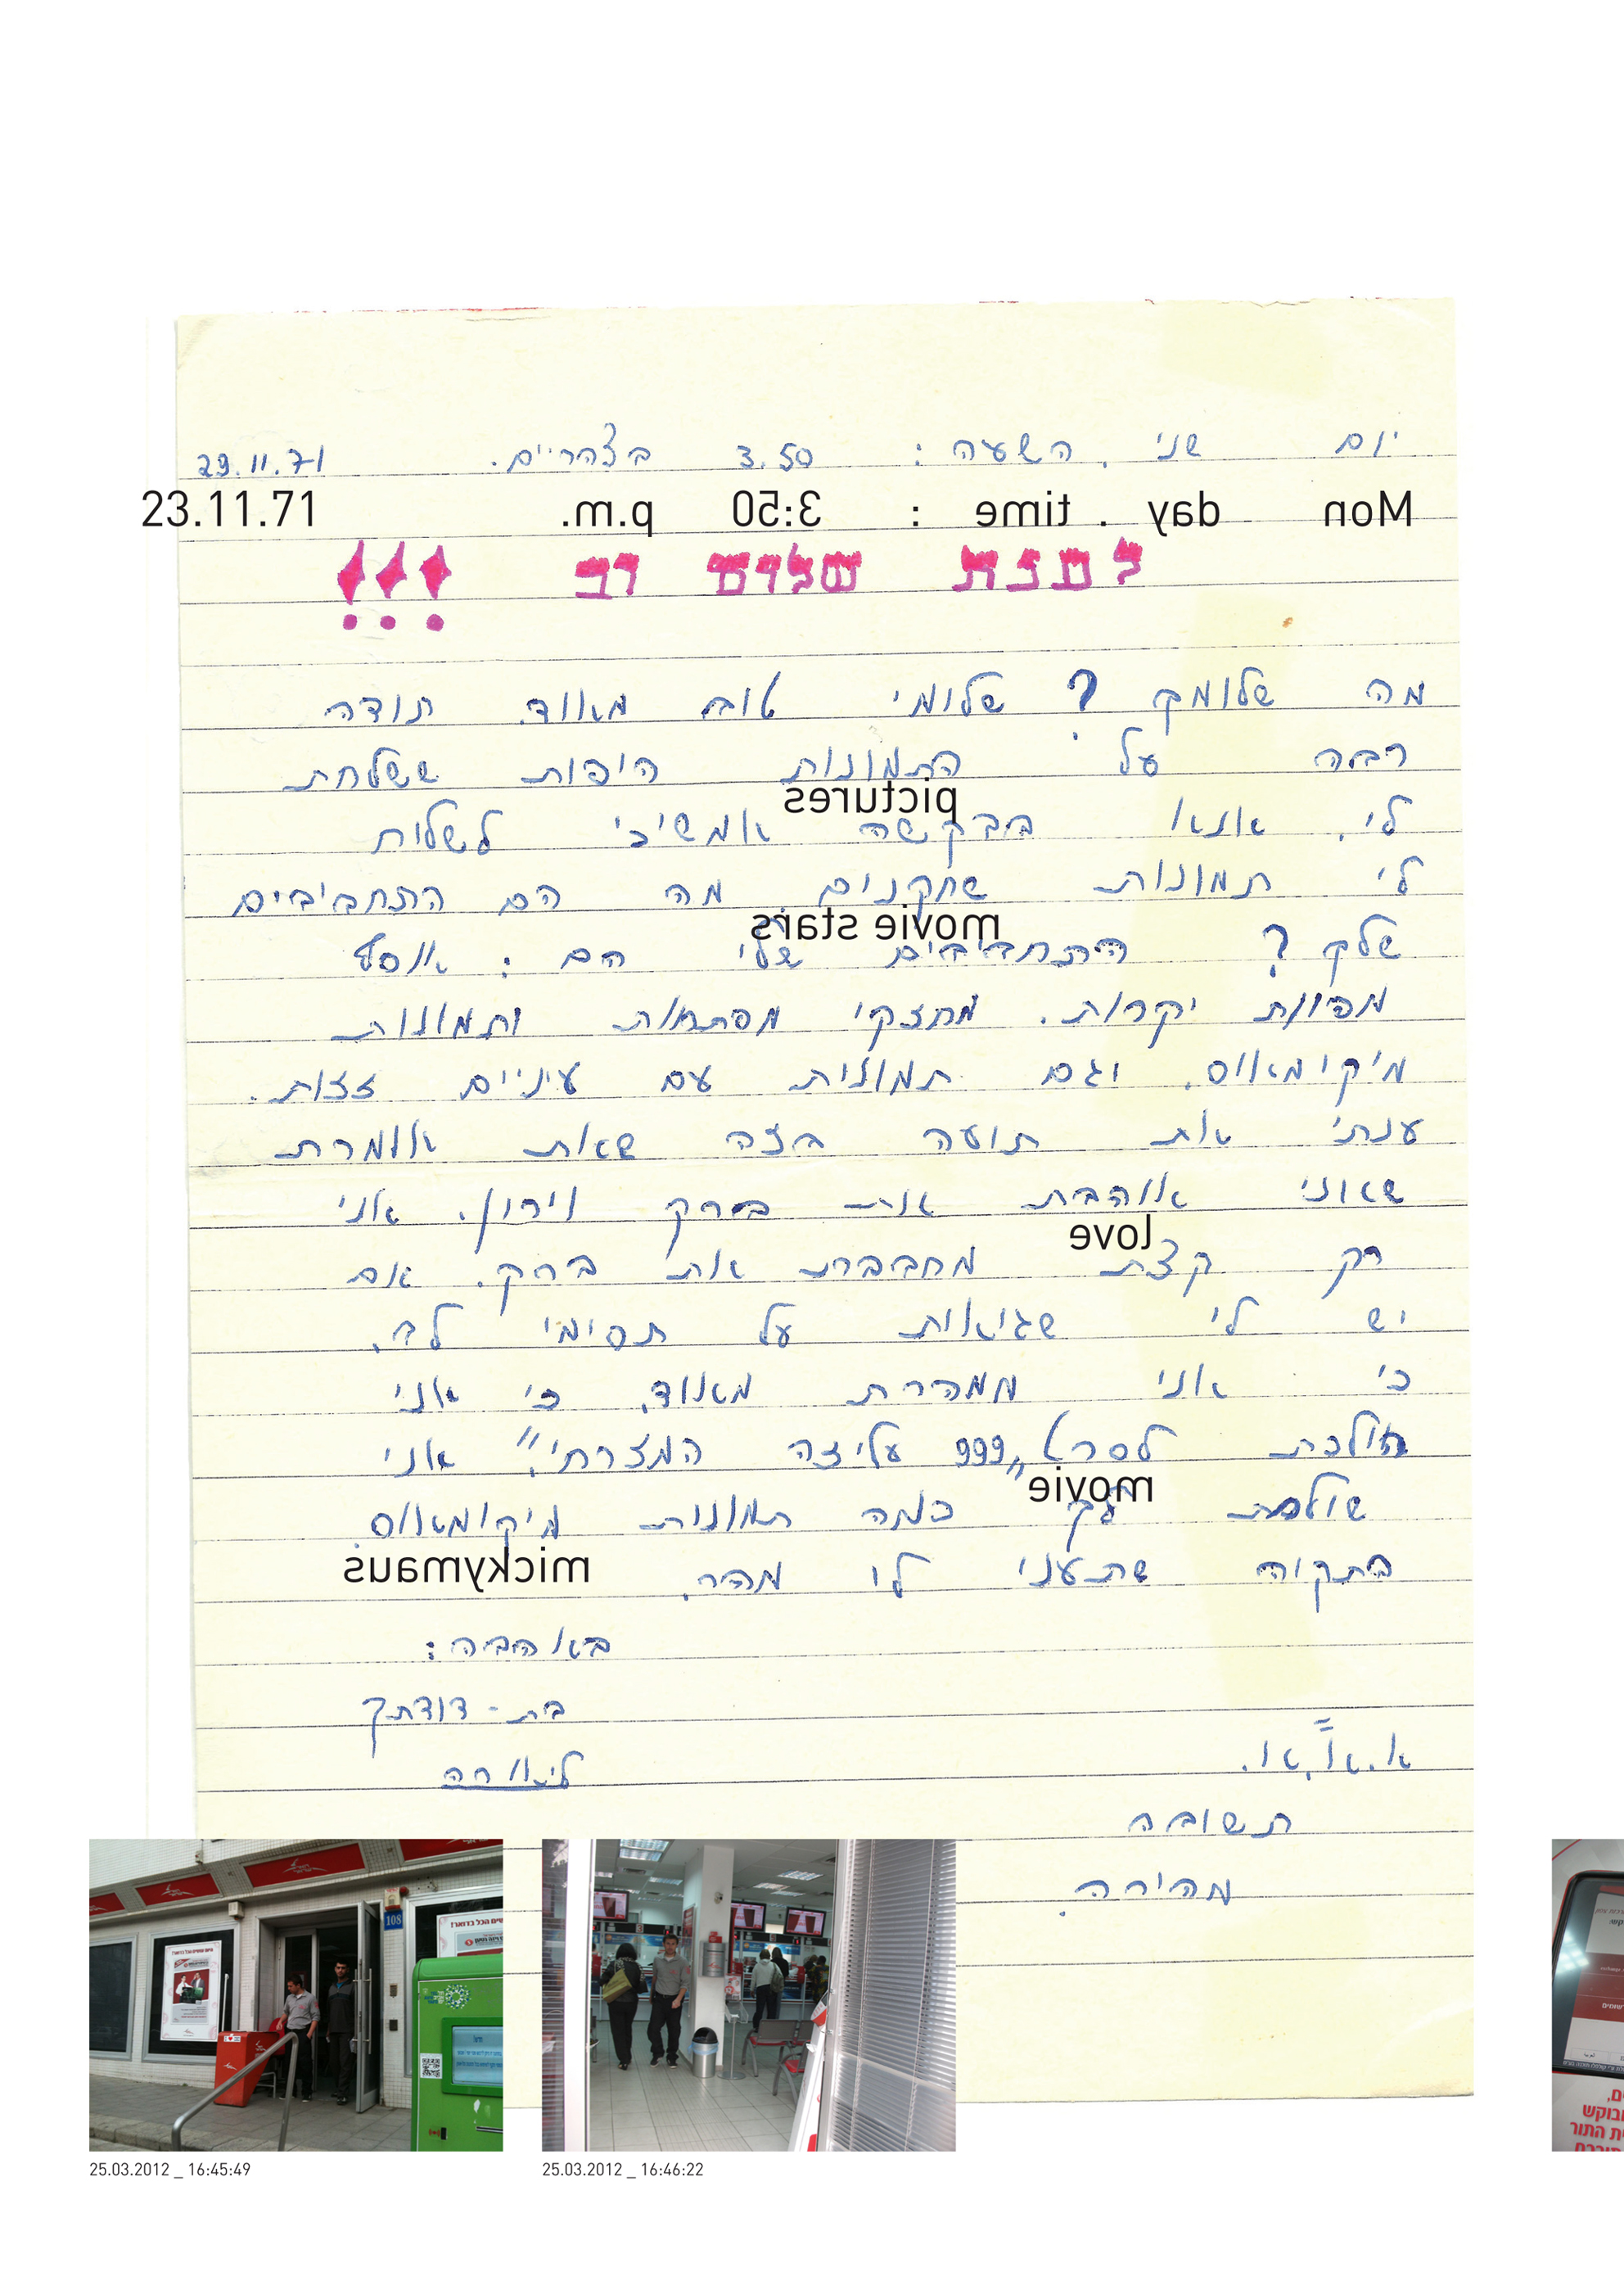 יום שני. השעה: 3.50 בצהריים. 29.11.71
Mon day . time : 3:50 p.m. 23.11.71
לענת שלום רב !!!
מה שלומך? שלומי טוב מאוד. תודה
רבה על התמונות היפות ששלחת
pictures
לי. אנא בבקשה אמשיכי לשלוח
לי תמונות שחקנים. מה הם התחביבים
movie stars
שלך? התחביבים שלי הם: אוסף
מפיות יקרות. מחזקי מפתחות ותמונות
מיקומאוס. וגם תמונות עם עיניים זזות.
ענתי את תועה בזה שאת אומרת
שאני אוהבת את ברק וירון. אני
love
רק קצת מחבבת את ברק. אם
יש לי שגיאות על תסימי לב.
כי אני ממהרת מאוד, כי אני
הולכת לסרט „999 עליזה המזרחי". אני
movie
שולחת לך כמה תמונות מיקומאוס.
mickymaus
בתקוה שתעני לי מהר.
באהבה:
בת-דודתך
ליאורה
א.או.או.
תשובה
מהירה.
108
25.03.2012 _ 16:45:49
25.03.2012 _ 16:46:22